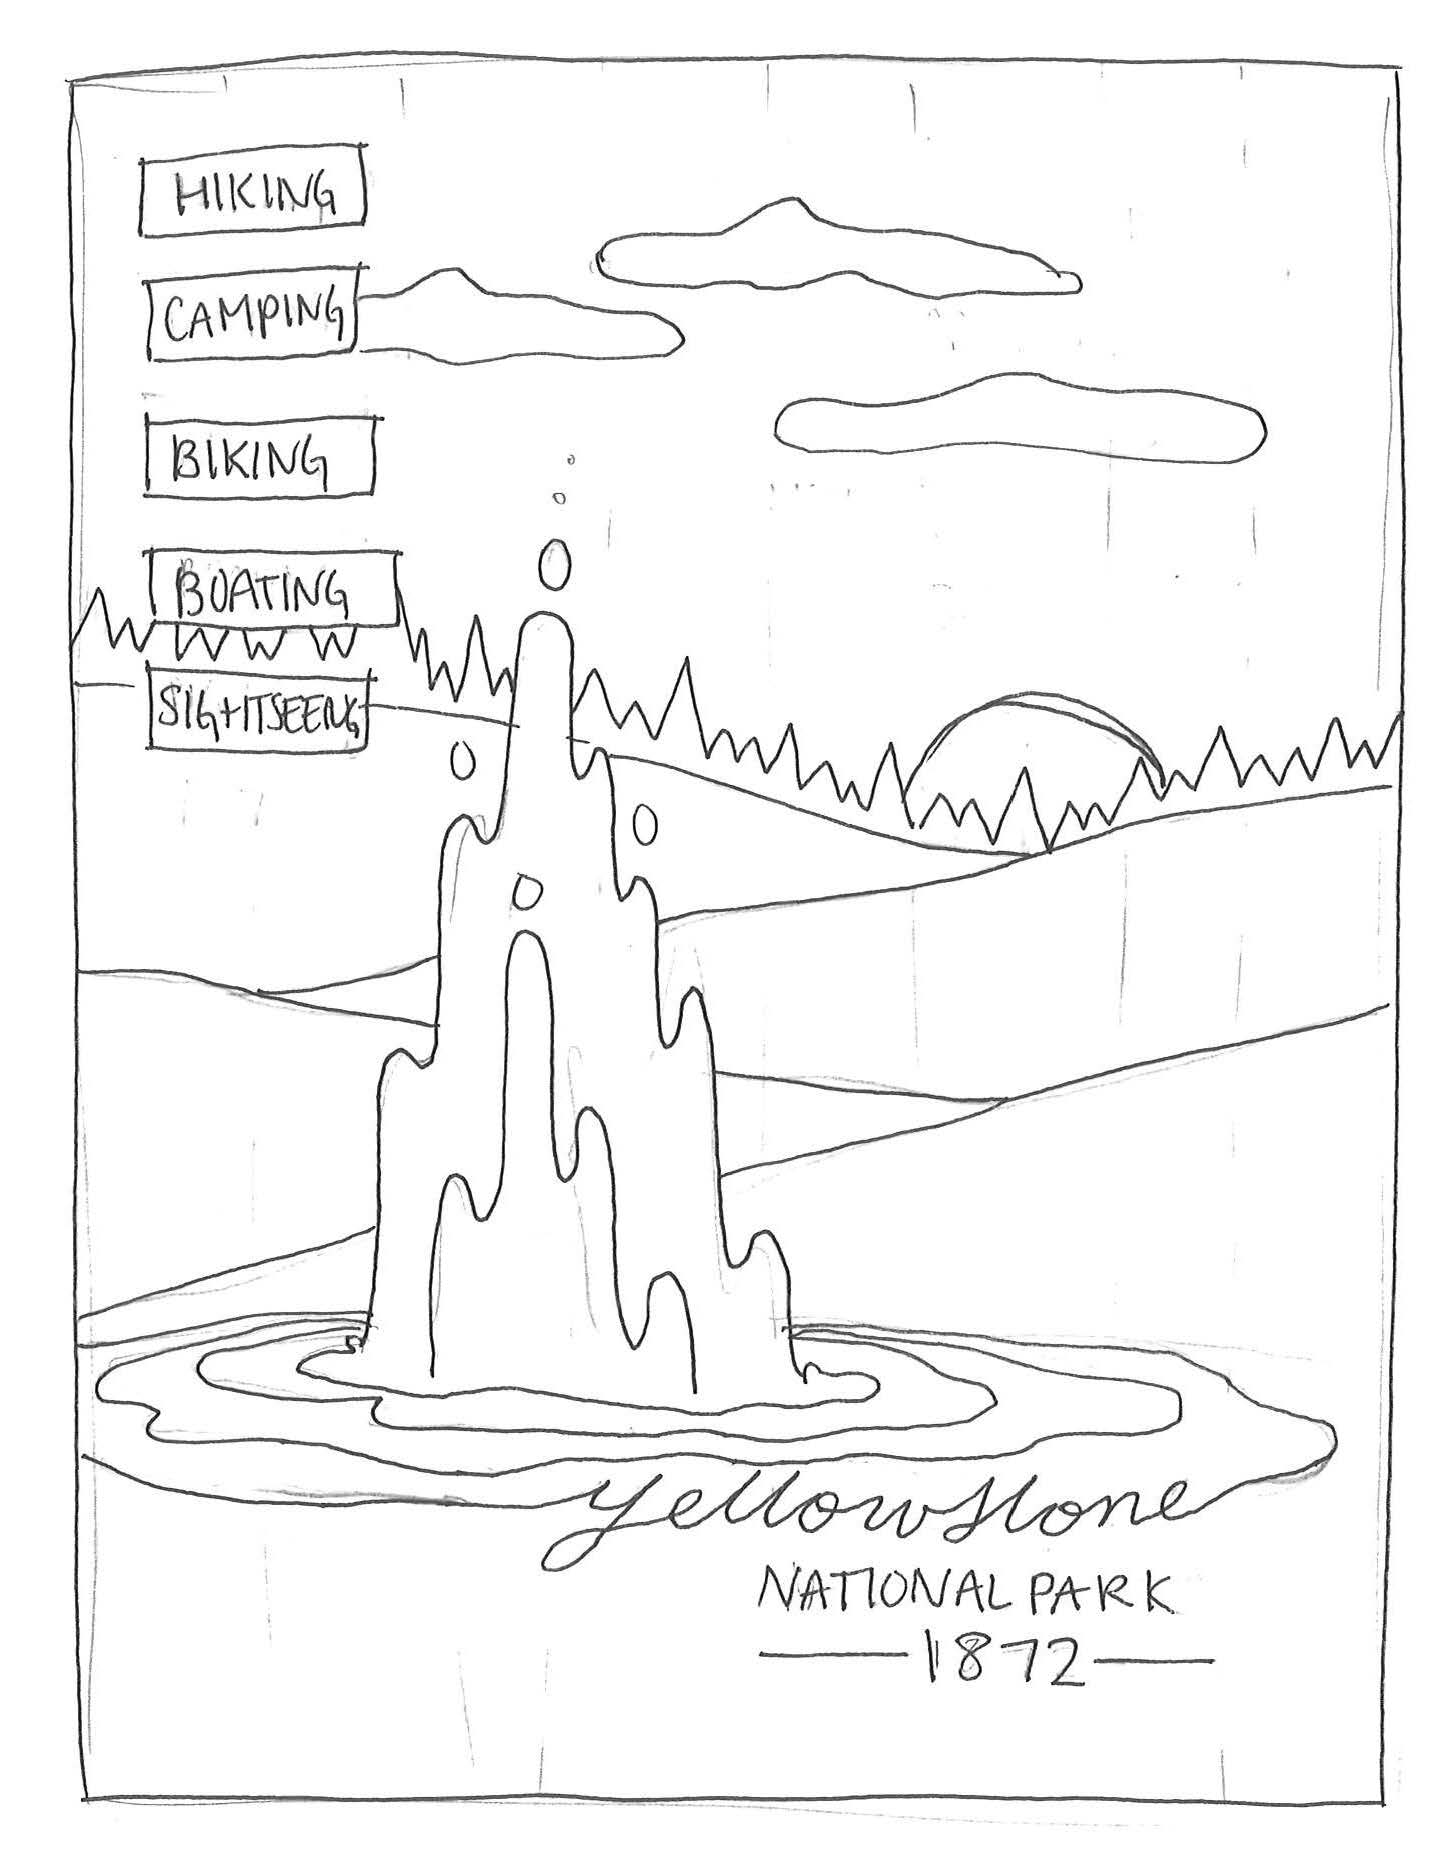 HIKING
CAMPING
BIKING
BOATING
SIGHTSEEING
Yellowstone
NATIONAL PARK
1872